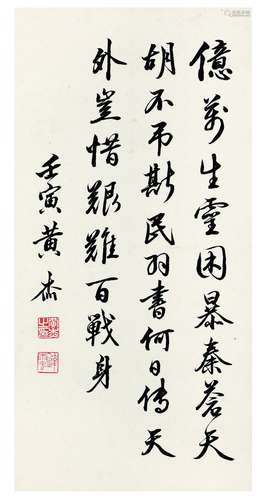 億萬生靈困暴秦蒼天
胡不弔斯民羽書何日傳天
外豈惜艱難百戰身
壬寅黃杰